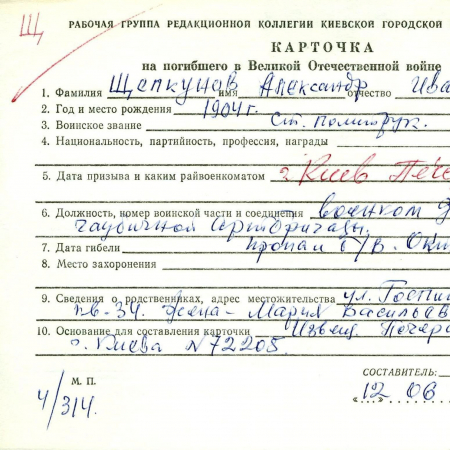 Щ
РАБОЧАЯ ГРУППА РЕДАКЦИОННОЙ КОЛЛЕГИИ КИЕВСКОЙ ГОРОДСКОЙ
КАРТОЧКА
на погибшего в Великой Отечественной войне
1. Фамилия Щепкунав имя Александр отчество Ива
2. Год и место рождения 1904 г.
3. Воинское звание Ст. политрук.
4. Национальность, партийность, профессия, награды
5. Дата призыва и каким райвоенкоматом г. Киев Пече
6. Должность, номер воинской части и соединения военком
гаубичной артбригады.
7. Дата гибели пропал б/в. Окт
8. Место захоронения
9. Сведения о родственниках, адрес местожительства ул. Госпи
кв-34. Жена - Мария Васильев
10. Основание для составления карточки Извещ. Печерс
г. Киева N 72205.
М. П.
СОСТАВИТЕЛЬ:
4/314.
"12 06